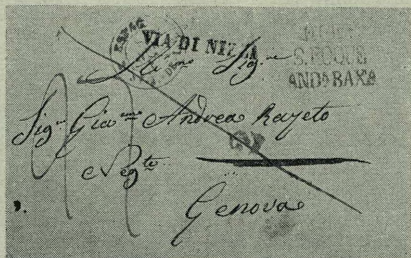 ESPAÑ
VIA DI NIZZA
S. ROQUE
ANDᴬ BAXA
Sigʳᵉ
Sigʳ Giaᵐᵒ Andrea Rayeto
Negᵗᵉ
Genova